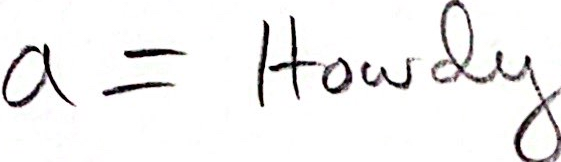 a = Howdy